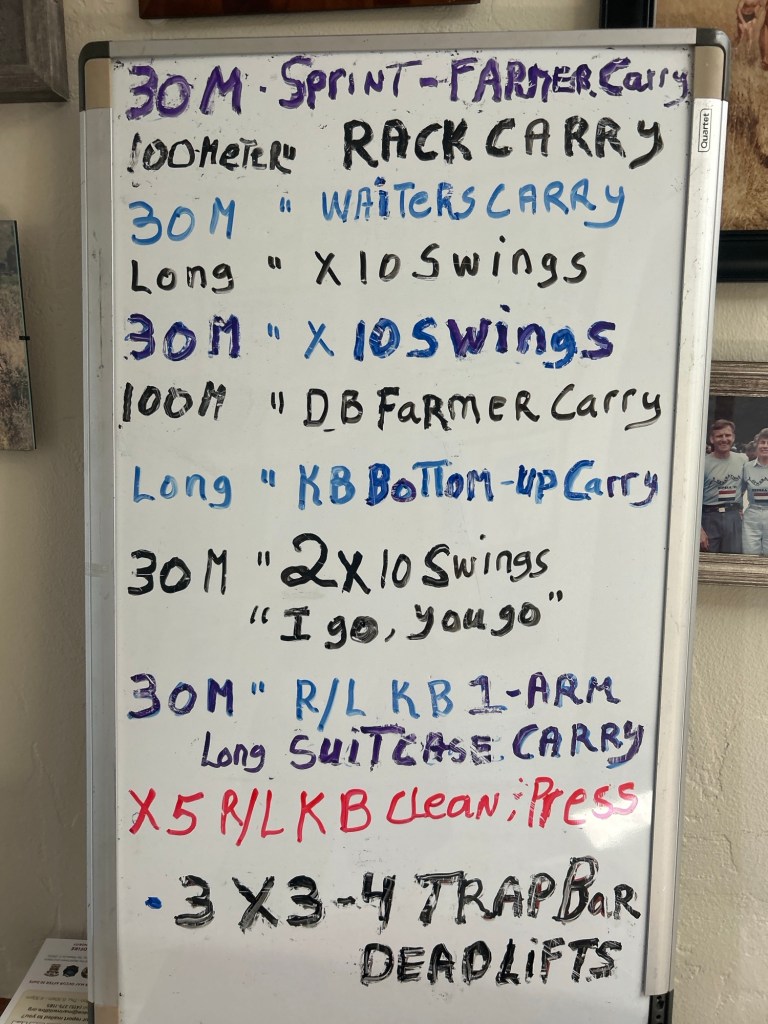 30M · Sprint-FARMER Carry
100METER " RACK CARRY
30M " WAITERS CARRY
Long " X 10 Swings
30M " X 10 Swings
100M " DB FaRMER Carry
Long " KB BoTTom-up Carry
30M " 2X10 Swings
"I go, you go"
30M " R/L KB 1-ARM
Long SuiTCASE CARRY
X5 R/L KB Clean ; Press
• 3 X 3-4 TRAP BaR
DEADLiFTS
Quartet